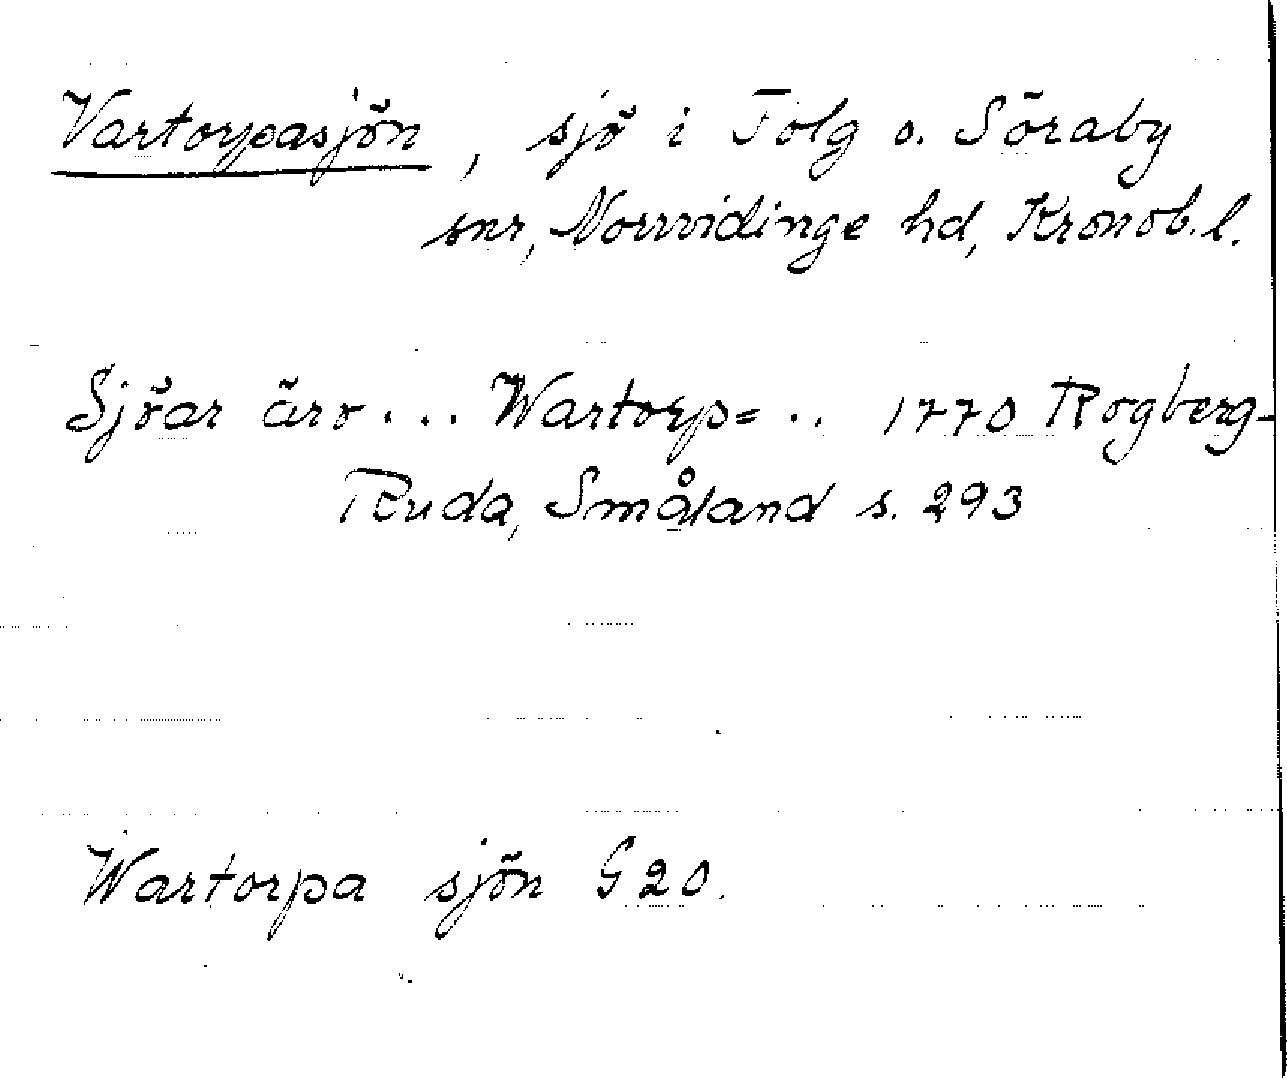 Vartorpasjön, sjö i Tolg o. Söraby
snr, Norrvidinge hd, Kronob. l.
Sjöar äro... Wartorp= .. 1770 Rogberg-
Ruda, Småland s. 293
Wartorpa sjön G20.